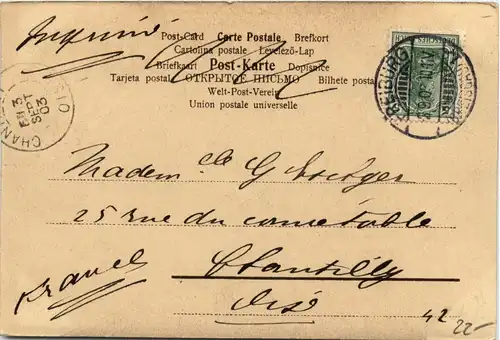 Imprimé
Post-Card Carte Postale Brefkort
Cartolina postale Levelező-Lap
Briefkaart Post-Karte Dopisnice
Tarjeta postal ОТКРЫТОЕ ПИСЬМО Bilhete postal
Welt-Post-Verein
Union postale universelle
FREIBURG
3
SEPT
03
Madem elle G
25 rue du connetable
Chantilly
Oise
France
42
22-